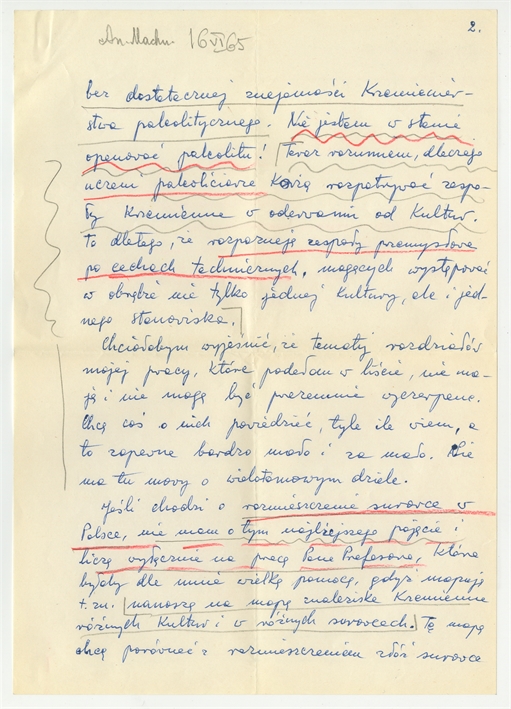 2.
An. Machn. 16 VI 65
bez dostatecznej znajomości Krzemieniar-
stwa paleolitycznego. Nie jestem w stanie
opanować paleolitu! Teraz rozumiem, dlaczego
uczeni paleoliciarze każą rozpatrywać zespo-
ły Krzemienne w oderwaniu od Kultur.
To dlatego, że rozpoznają zespoły przemysłowe
po cechach technicznych, mogących występować
w obrębie nie tylko jednej Kultury, ale i jed-
nego stanowiska.
Chciałabym wyjaśnić, że tematy rozdziałów
mojej pracy, które podałam w liście, nie ma-
ją i nie mogą być przezemnie wyczerpane.
Chcę coś o nich powiedzieć, tyle ile wiem, a
to zapewne bardzo mało i za mało. Nie
ma tu mowy o wielotomowym dziele.
Jeśli chodzi o rozmieszczenie surowca w
Polsce, nie mam o tym najlżejszego pojęcia i
liczę wyłącznie na pracę Pana Profesora, która
byłaby dla mnie wielką pomocą, gdyż mapuję
t.zn. nanoszę na mapę znaleziska Krzemienne
różnych Kultur i w różnych surowcach. Tę mapę
chcę porównać z rozmieszczeniem złóż surowca